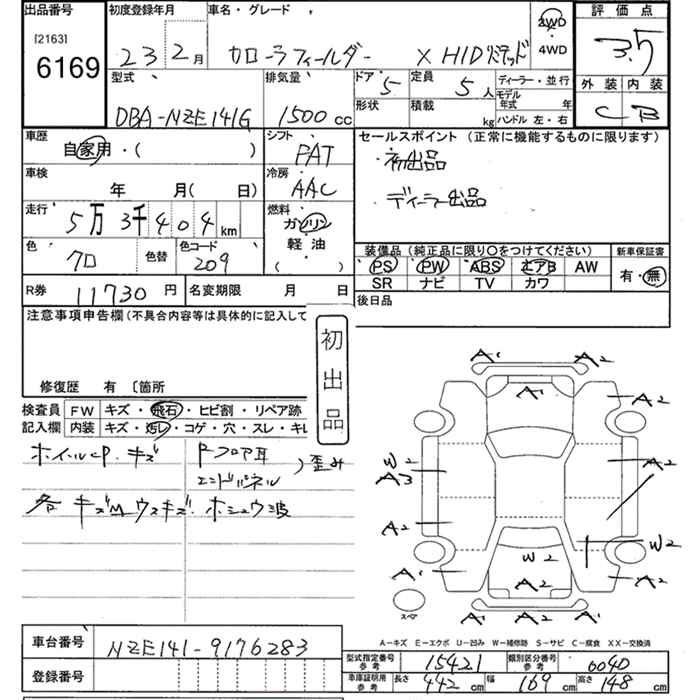 出品番号 初度登録年月 車名・グレード 評価点
[2163]
6169 23 2月 カローラフィールダー X HIDリミテッド 2WD ・ 4WD 3.5
型式 排気量 ドア 5 定員 5人 ディーラー・並行 外装 内装
DBA-NZE141G 1500cc 形状 積載 kg モデル年式 年 C B
ハンドル 左・右
車歴 自家用・( ) シフト FAT セールスポイント (正常に機能するものに限ります)
車検 年 月( 日) 冷房 AAC ・初出品
走行 5万3千404km 燃料 ガソリン ・ディーラー出品
色 クロ 色替 色コード 209 軽油 ( )
装備品 (純正品に限り○をつけてください) 新車保証書
PS PW ABS エアB AW 有・無
SR ナビ TV カワ
R券 11730円 名変期限 月 日 後日品
注意事項申告欄(不具合内容等は具体的に記入して
初出品
修復歴 有 〔箇所
検査員 FW キズ・飛石・ヒビ割・リペア跡
記入欄 内装 キズ・汚レ・コゲ・穴・スレ・キレ
ホイールCP.キズ
エンドパネル 歪み
各 キズ ウスキズ.ホシュウ波
A1 A2
A1
A2 A2
W2
A3 A2
A2
W2 W2
A1 A2 A2
A2 A2 A1
スペア
A-キズ E-エクボ U-凹み W-補修跡 S-サビ C-腐食 XX-交換済
車台番号 NZE141-9176283
型式指定番号 参考 15421 類別区分番号 参考 0040
登録番号 車庫証明用 参考 長さ 442cm 幅 169cm 高さ 148cm